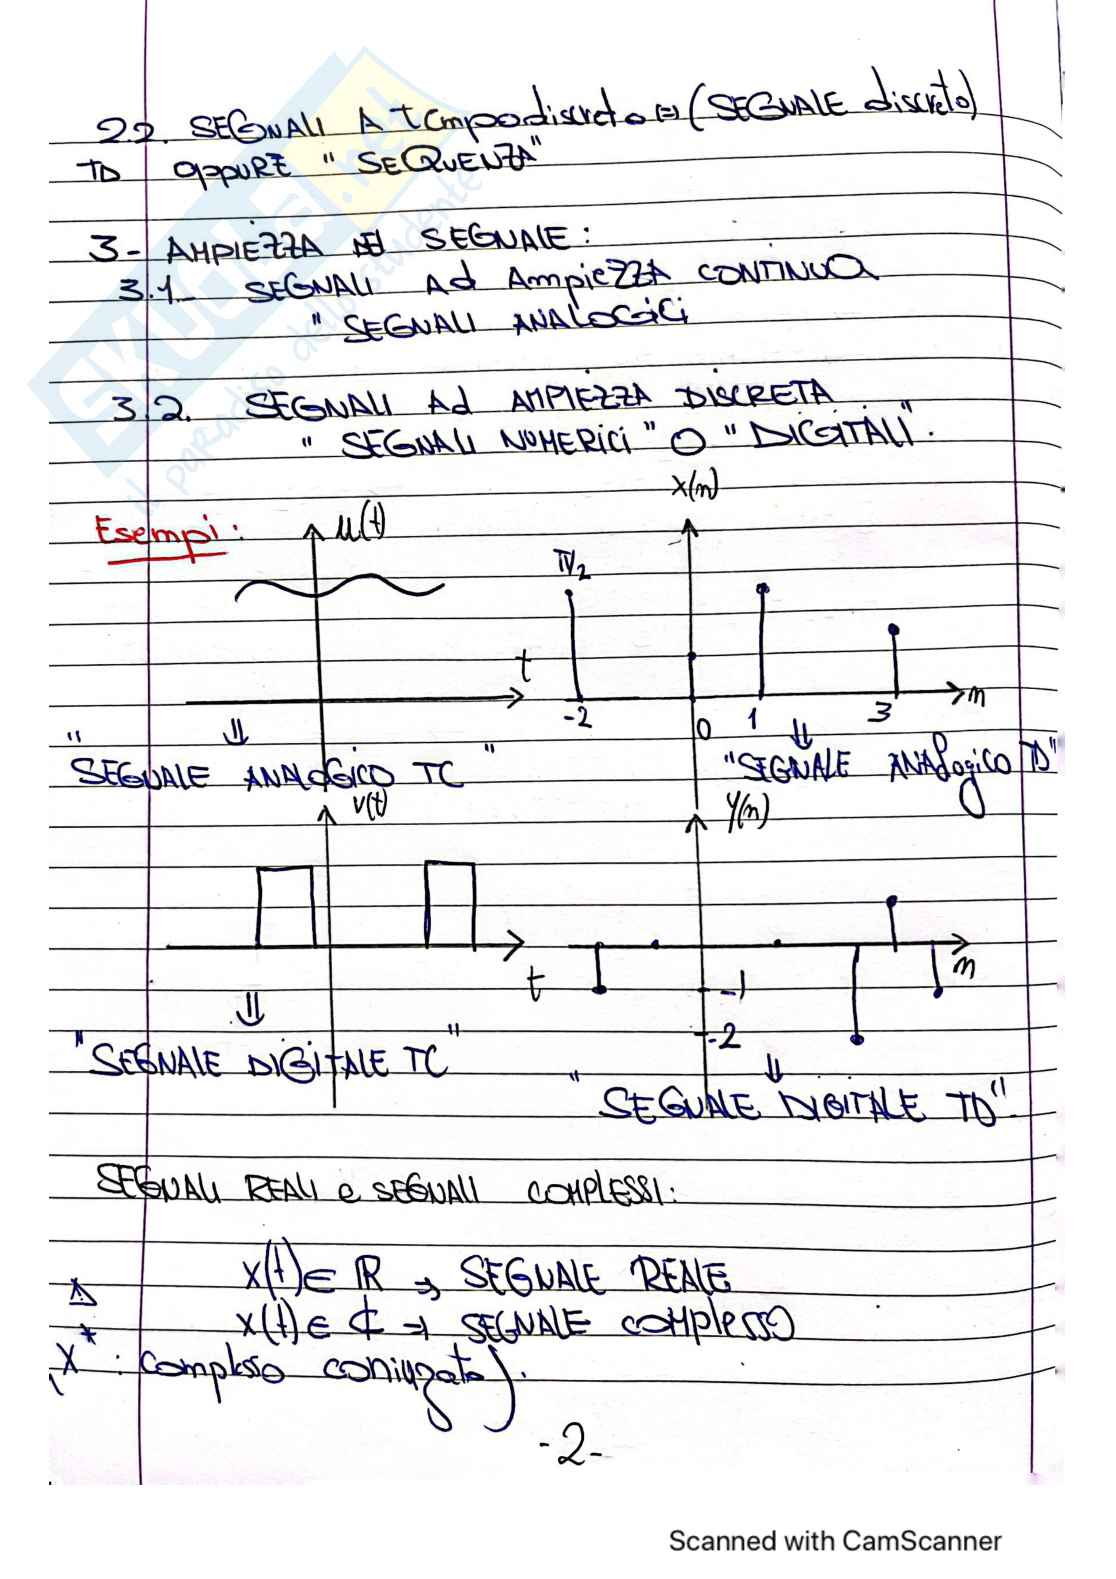 2.2. SEGNALI A tempo discreto ⇔ (SEGNALE discreto)
TD oppure "SEQUENZA"
3- AMPIEZZA del SEGNALE:
3.1- SEGNALI Ad AmpiezzA CONTINUA
" SEGNALI ANALOGICI
3.2. SEGNALI Ad AMPIEZZA DISCRETA
" SEGNALI NUMERICI " O " DIGITALI".
Esempi:
u(t)
t
x(n)
π/2
-2
0
1
3
n
⇓
⇓
"SEGNALE ANALOGICO TC"
"SEGNALE ANALogico TD"
v(t)
t
y(n)
n
-1
-2
⇓
⇓
"SEGNALE DIGITALE TC"
"SEGNALE DIGITALE TD"
SEGNALI REALI e SEGNALI COMPLESSI:
x(t) ∈ ℝ → SEGNALE REALE
x(t) ∈ ℂ → SEGNALE complesso
(x* : complesso coniugato).
-2-
SKUOLA.net
il paradiso dello studente
Scanned with CamScanner